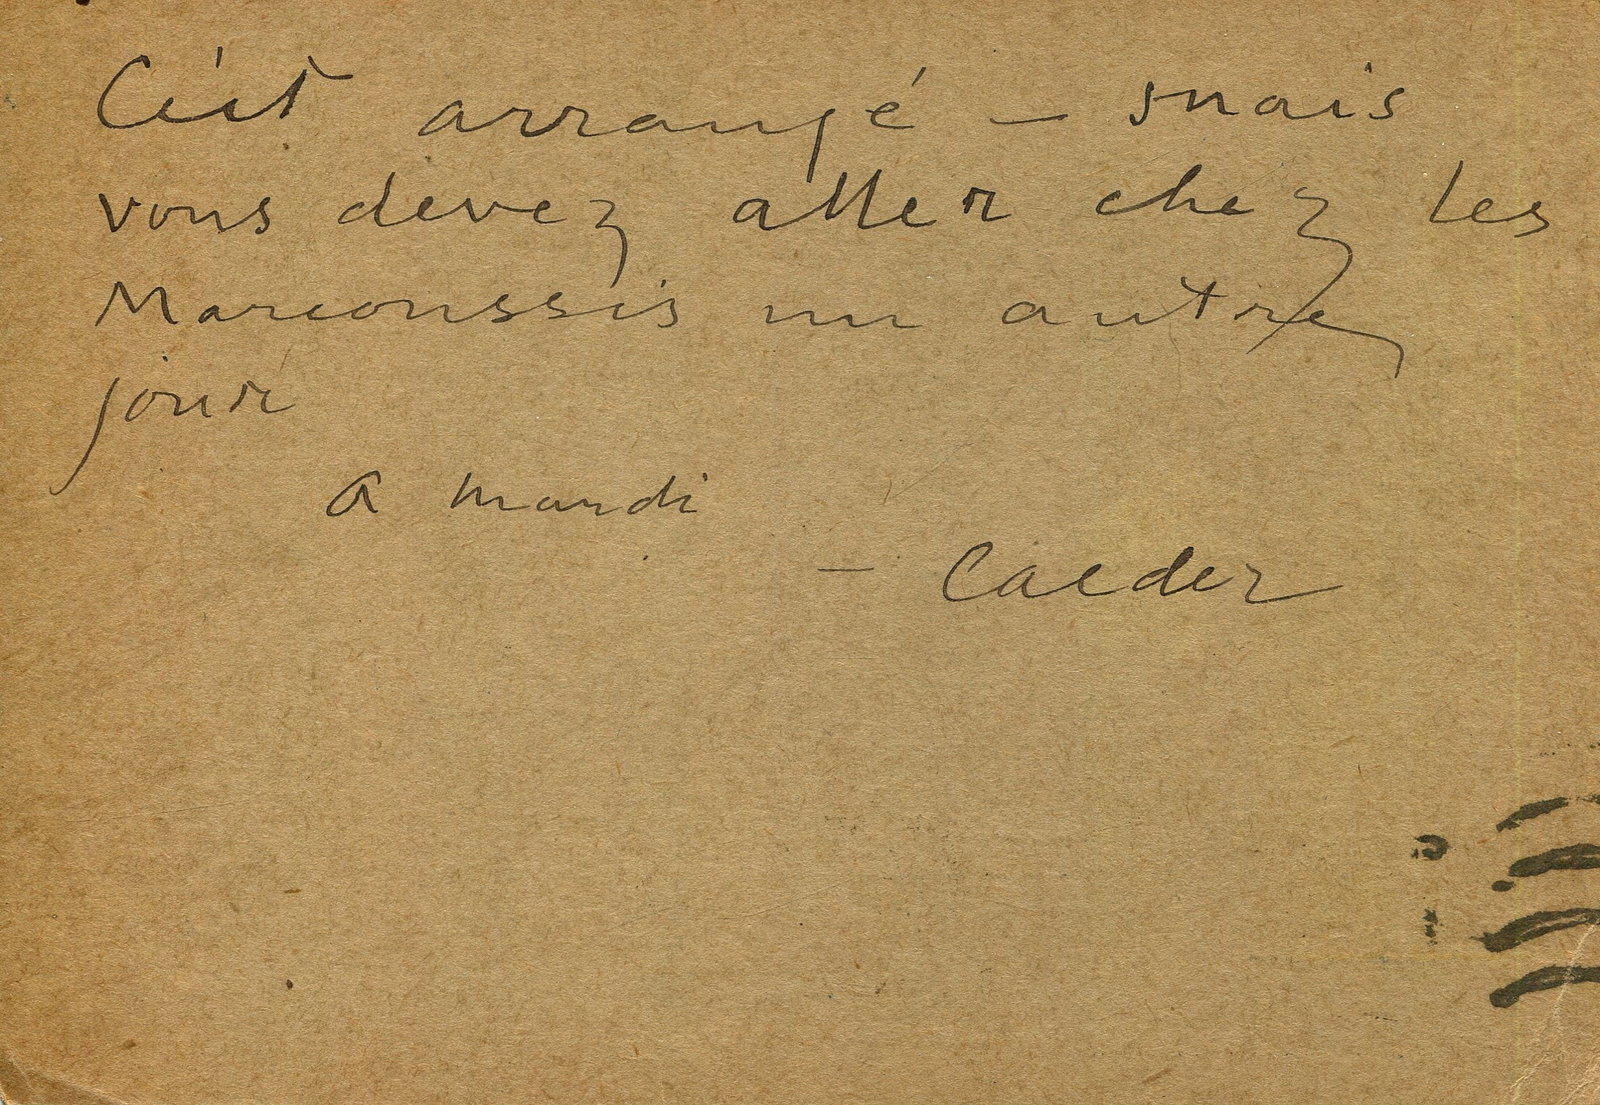 C'est arrangé – mais
vous devez aller chez les
Marcoussis un autre
jour
A mardi
– Calder